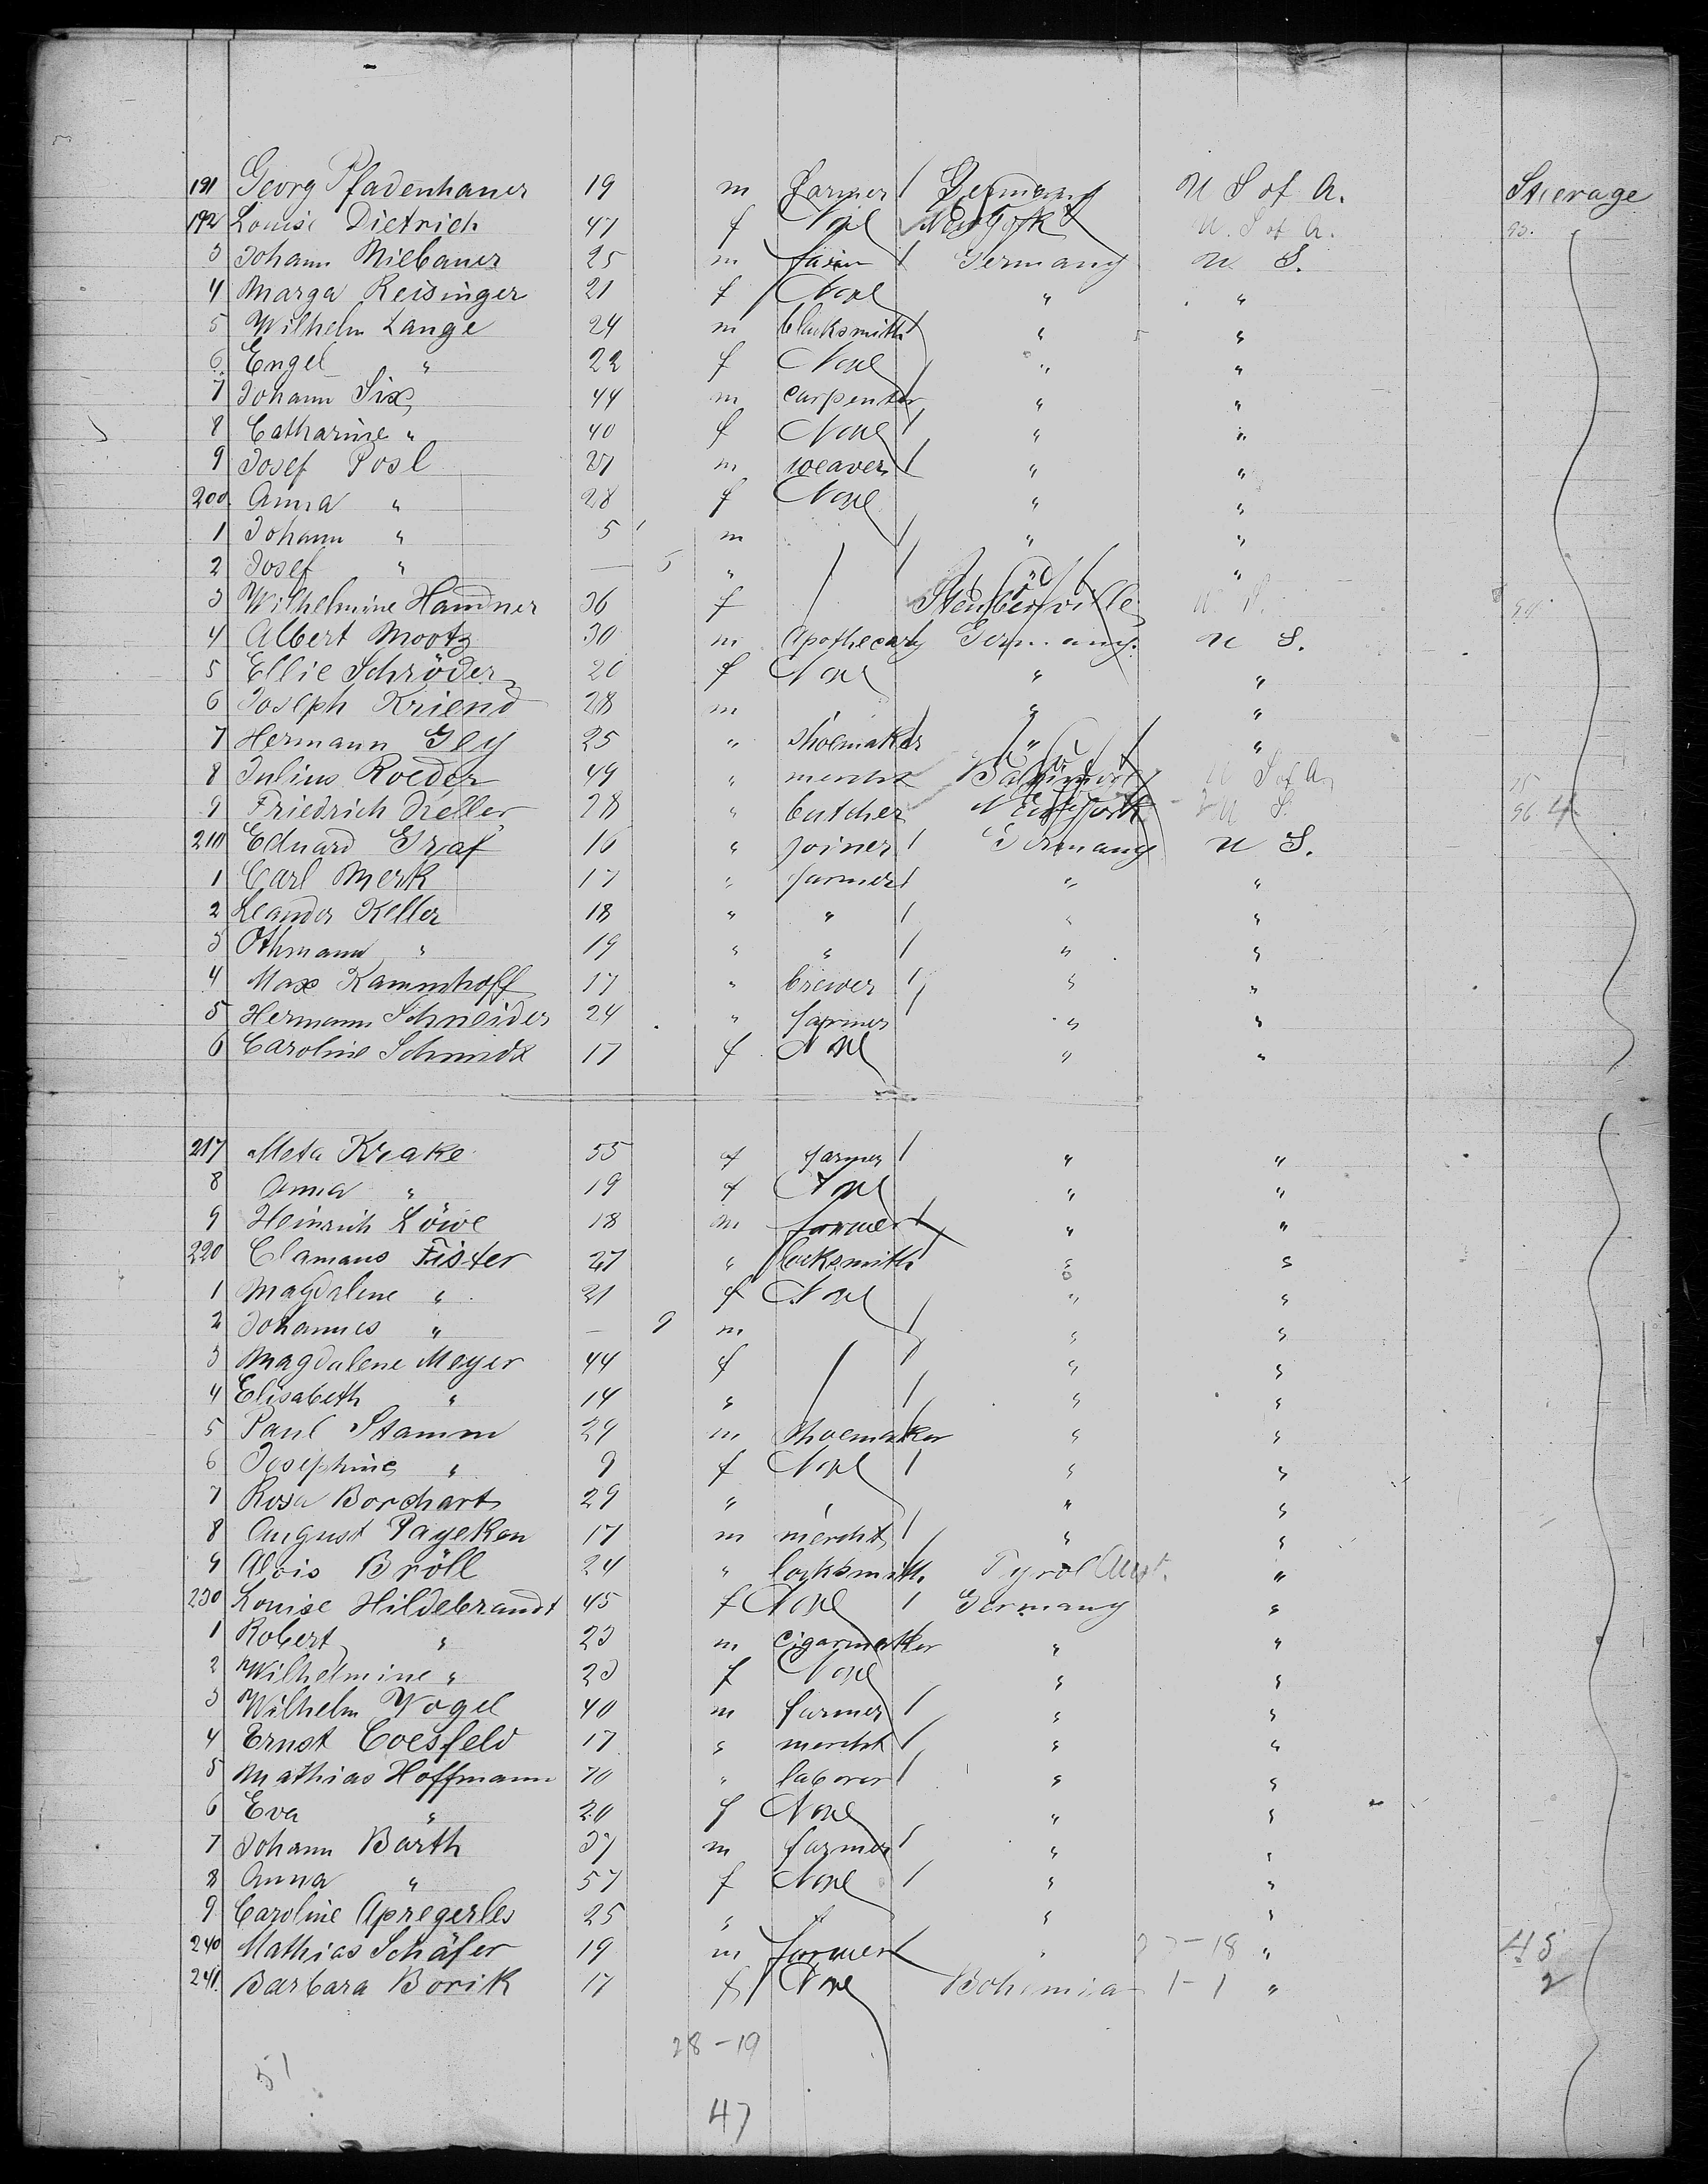 191 Georg Pfadenhauer 19 m farmer Germany U S of A. Steerage
192 Louise Dietrich 47 f None New York U. S of A. 93.
3 Johann Miebauer 25 m farmer Germany U S.
4 Marga Reisinger 21 f None " "
5 Wilhelm Lange 24 m blacksmith " "
6 Engel " 22 f None " "
7 Johann Six 44 m carpenter " "
8 Catharine " 40 f None " "
9 Josef Posl 27 m weaver " "
200 Anna " 28 f None " "
1 Johann " 5 m " "
2 Josef " — 5 " "
3 Wilhelmine Handner 36 f Steubenville U. S. 94
4 Albert Mootz 30 m Apothecary Germany. U S.
5 Ellie Schröder 20 f None " "
6 Joseph Kriend 28 m " "
7 Hermann Gey 25 " shoemaker " "
8 Julius Roeder 49 " mercht U S of A. 95
9 Friedrich Heller 28 " butcher New York U S. 96
210 Eduard Graf 16 " joiner Germany U S.
1 Carl Merk 17 " farmer " "
2 Leander Keller 18 " " " "
3 Othmann " 19 " " " "
4 Max Kammhoff 17 " brewer " "
5 Hermann Schneider 24 " farmer " "
6 Caroline Schmidt 17 f None " "
217 Meta Krake 55 f farmer " "
8 Anna " 19 f None " "
9 Heinrich Löwe 18 m farmer " "
220 Clamans Fister 27 " locksmith " "
1 Magdalene " 21 f None " "
2 Johannes " — 9 m " "
3 Magdalene Meyer 44 f " "
4 Elisabeth " 14 " " "
5 Paul Stamm 29 m shoemaker " "
6 Josephine " 9 f None " "
7 Rosa Borchart 29 " " "
8 August Payeken 17 m mercht " "
9 Alois Bröll 24 " locksmith Tyrol Aust. "
230 Louise Hildebrandt 45 f None Germany "
1 Robert " 23 m cigarmaker " "
2 Wilhelmine " 23 f None " "
3 Wilhelm Vogel 40 m farmer " "
4 Ernst Coesfeld 17 " mercht " "
5 Mathias Hoffmann 70 " laborer " "
6 Eva " 20 f None " "
7 Johann Barth 37 m farmer " "
8 Anna " 57 f None " "
9 Caroline Apregerles 25 " " "
240 Mathias Schäfer 19 m farmer " 27-18 " 45
241 Barbara Borik 17 f None Bohemia 1-1 " 2
28-19
51
47